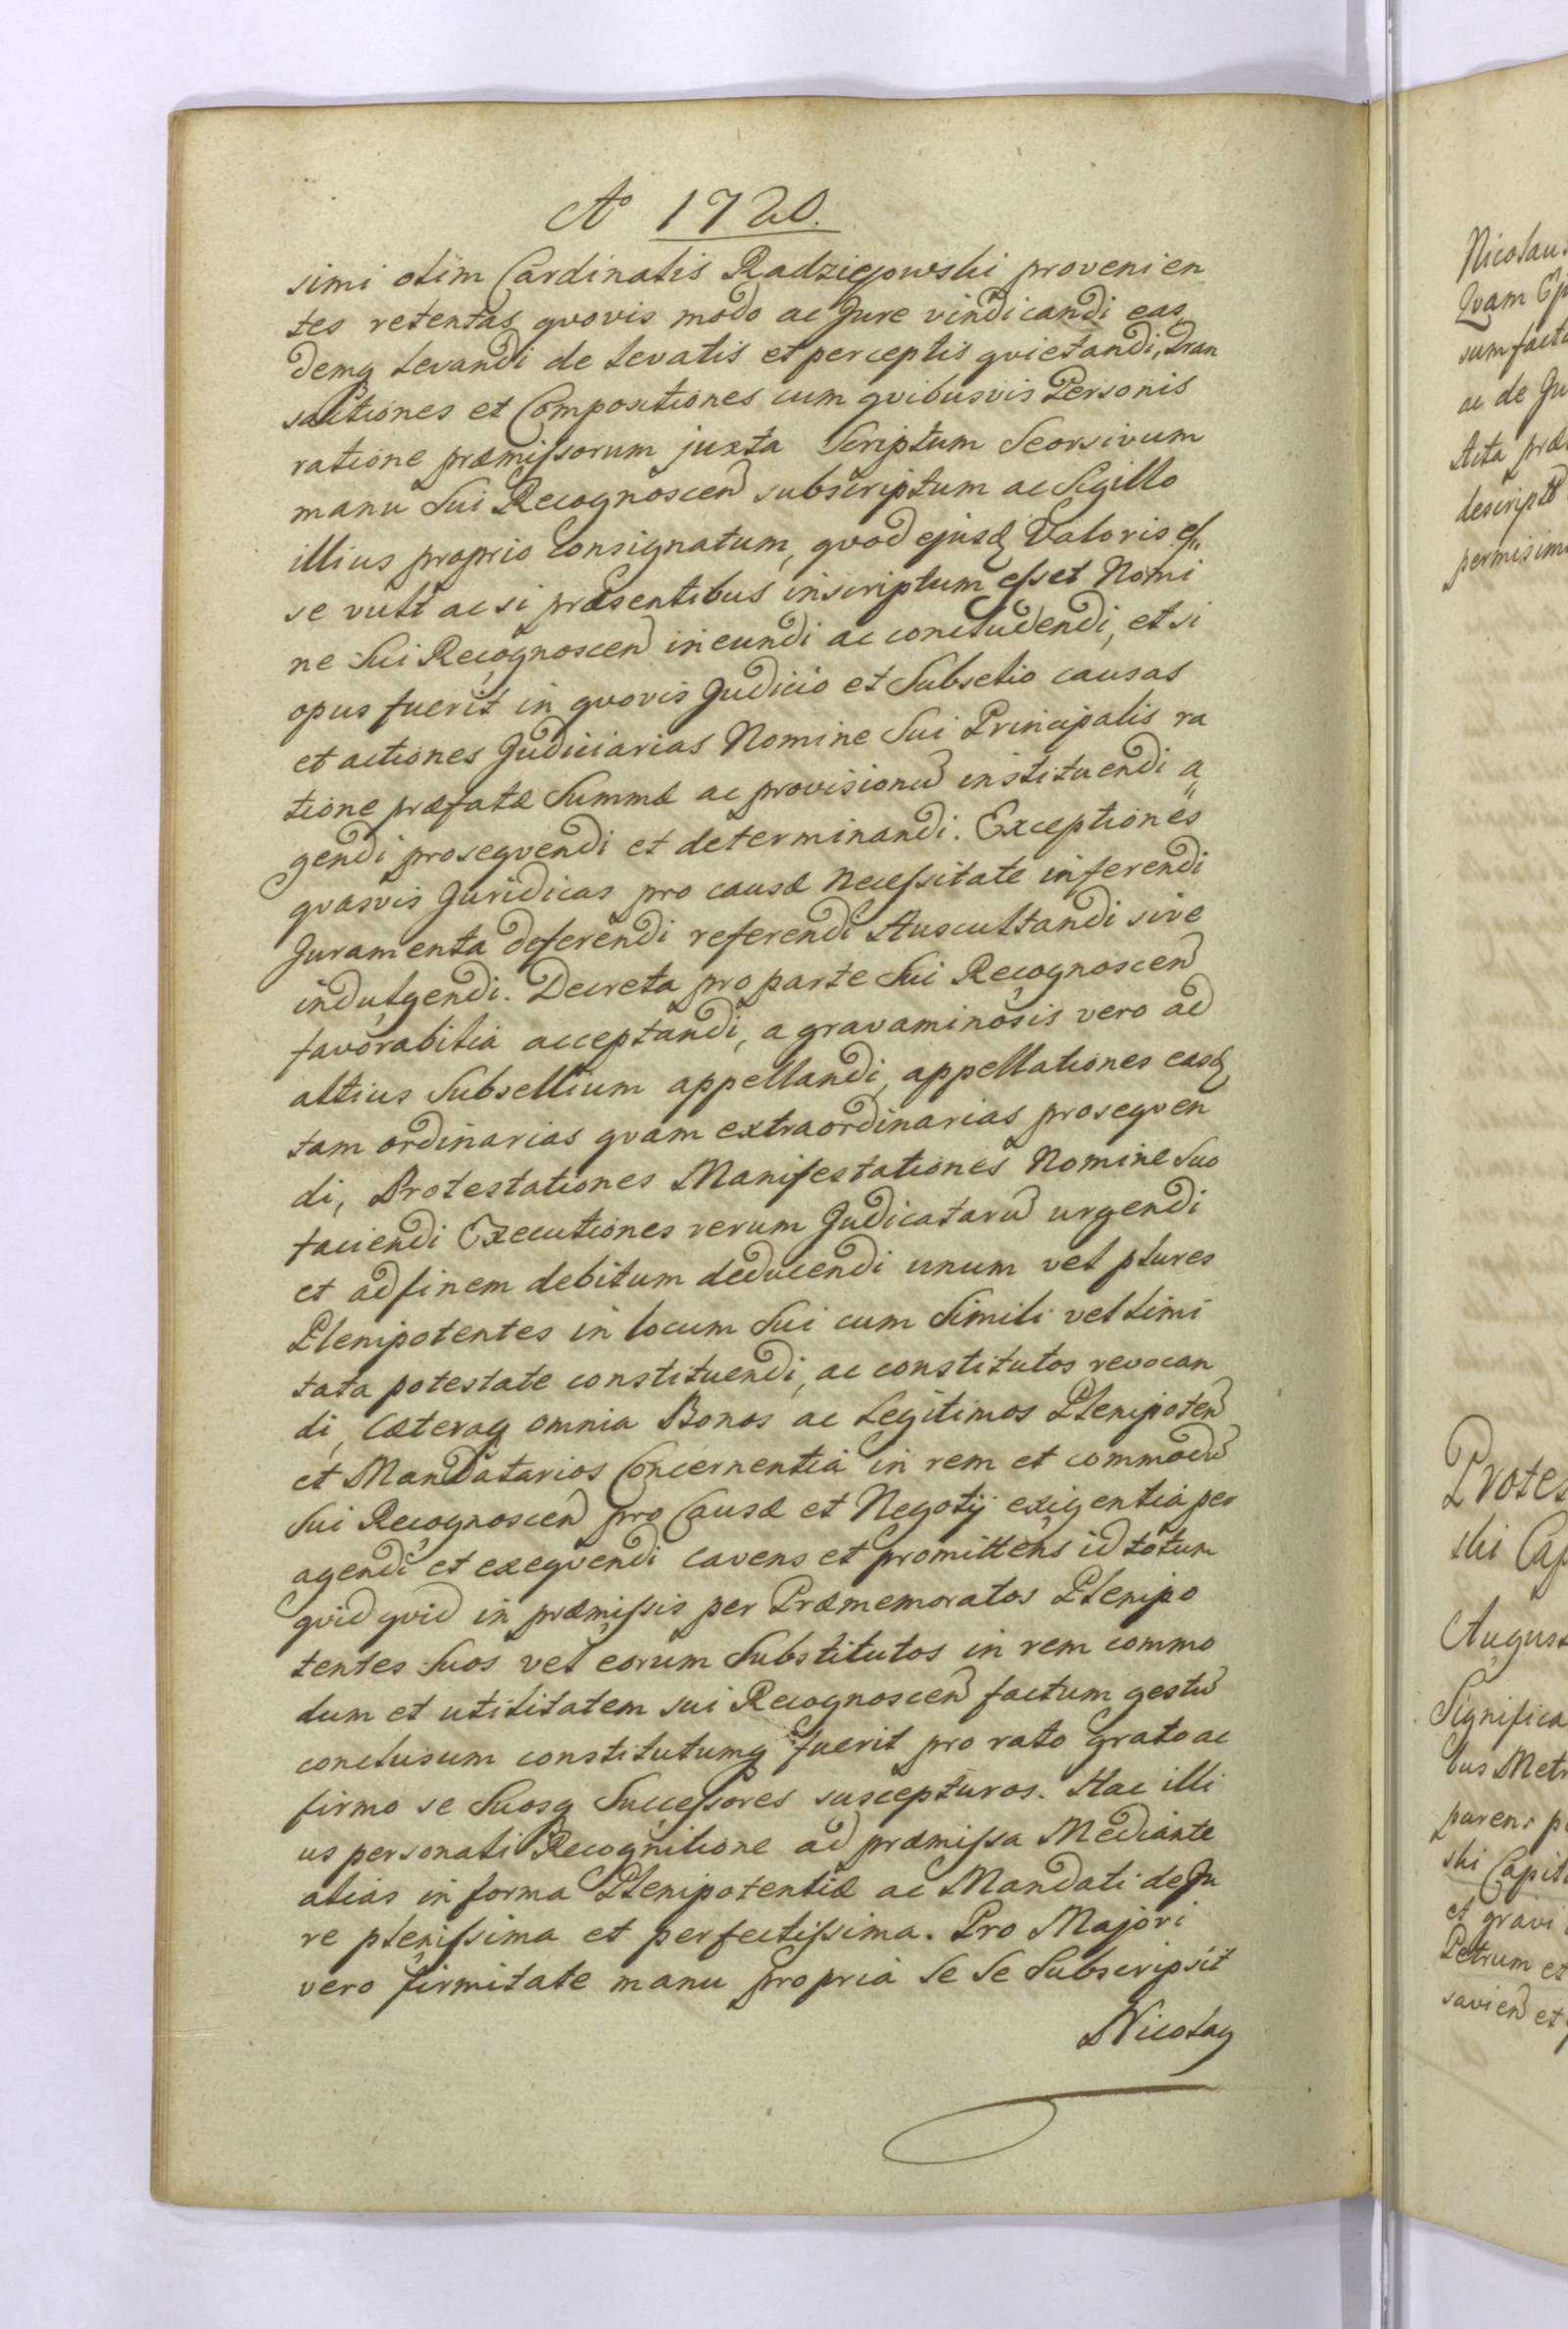 Aº 1720.
simi olim Cardinalis Radziejowski provenien
tes retentas qvovis modo ac Jure vindicandi eas
demq levandi de levatis et perceptis qvietandi, Tran
sactiones et Compositiones cum qvibusvis Personis
ratione præmissorum juxta Scriptum Seorsivum
manu Sui Recognoscen subscriptum ac Sigillo
illius proprio consignatum, qvod ejusd Valoris es
se vult ac si præsentibus inscriptum esset Nomi
ne Sui Recognoscen ineundi ac concludendi, et si
opus fuerit in qvovis Judicio et Subselio causas
et actiones Judiciarias Nomine Sui Principalis ra
tione præfatæ Summæ ac provisionu instituendi a
gendi proseqvendi et determinandi. Exceptiones
qvasvis Juridicas pro causæ necessitate inferendi
Juramenta deferendi referendi Auscultandi sive
indulgendi. Decreta pro parte Sui Recognoscen
favorabilia acceptandi, a gravaminosis vero ad
altius Subsellium appellandi, appellationes easd
tam ordinarias qvam extraordinarias proseqven
di, Protestationes Manifestationes Nomine Suo
faciendi Executiones rerum Judicataru urgendi
et ad finem debitum deducendi unum vel plures
Plenipotentes in locum Sui cum Simili vel limi
tata potestate constituendi, ac constitutos revocan
di, Cæteraq omnia Bonos ac Legitimos Plenipoten
et Mandatarios Concernentia in rem et commodu
Sui Recognoscen pro Causæ et Negotij exigentia per
agendi et exeqvendi Cavens et promittens id totum
qvid qvid in præmissis per Præmemoratos Plenipo
tentes Suos vel eorum Substitutos in rem commo
dum et utilitatem sui Recognoscen factum gestu
conclusum constitutumq fuerit pro rato grato ac
firmo se Suosq Successores suscepturos. Hac illi
us personali Recognitione ad præmissa Mediante
alias in forma Plenipotentiæ ac Mandati de Ju
re plenissima et perfectissima. Pro Majori
vero firmitate manu propria Se Se Subscripsit
Nicolaq
Nicolau
Qvam
sum fact
ac de Ju
Acta præ
descript
permisim
Protes
ski Cap
August
Significa
bus Metr
paren: p
ski Capit
et gravi
Petrum et
savien et